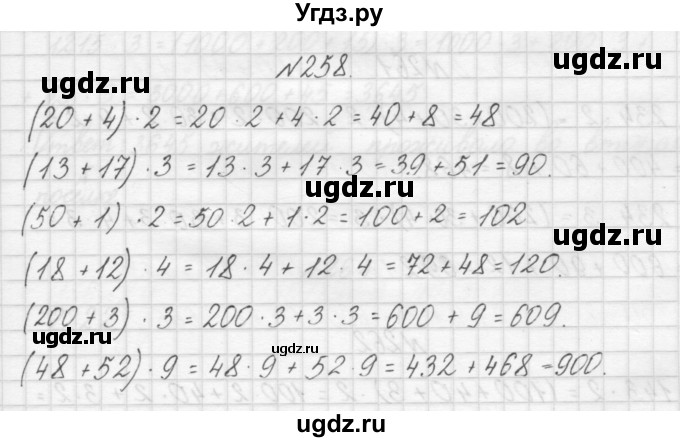 Угдз.ру
№258.
ugdz.ru ugdz.ru
(20 + 4) · 2 = 20 · 2 + 4 · 2 = 40 + 8 = 48
(13 + 17) · 3 = 13 · 3 + 17 · 3 = 39 + 51 = 90.
ugdz.ru ugdz.ru
(50 + 1) · 2 = 50 · 2 + 1 · 2 = 100 + 2 = 102
ugdz.ru
(18 + 12) · 4 = 18 · 4 + 12 · 4 = 72 + 48 = 120.
(200 + 3) · 3 = 200 · 3 + 3 · 3 = 600 + 9 = 609.
ugdz.ru ugdz.ru
ugdz.ru
(48 + 52) · 9 = 48 · 9 + 52 · 9 = 432 + 468 = 900.
ugdz.ru ugdz.ru